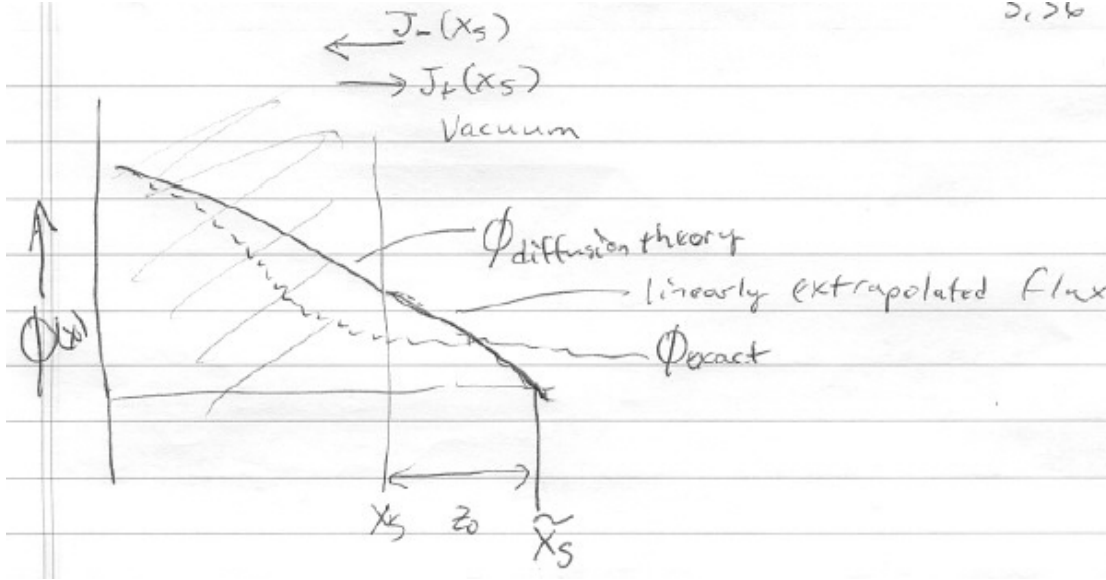 J-(xs)
J+(xs)
Vacuum
ϕ diffusion theory
linearly extrapolated flux
ϕ(x)
ϕexact
xs
z0
x̃s